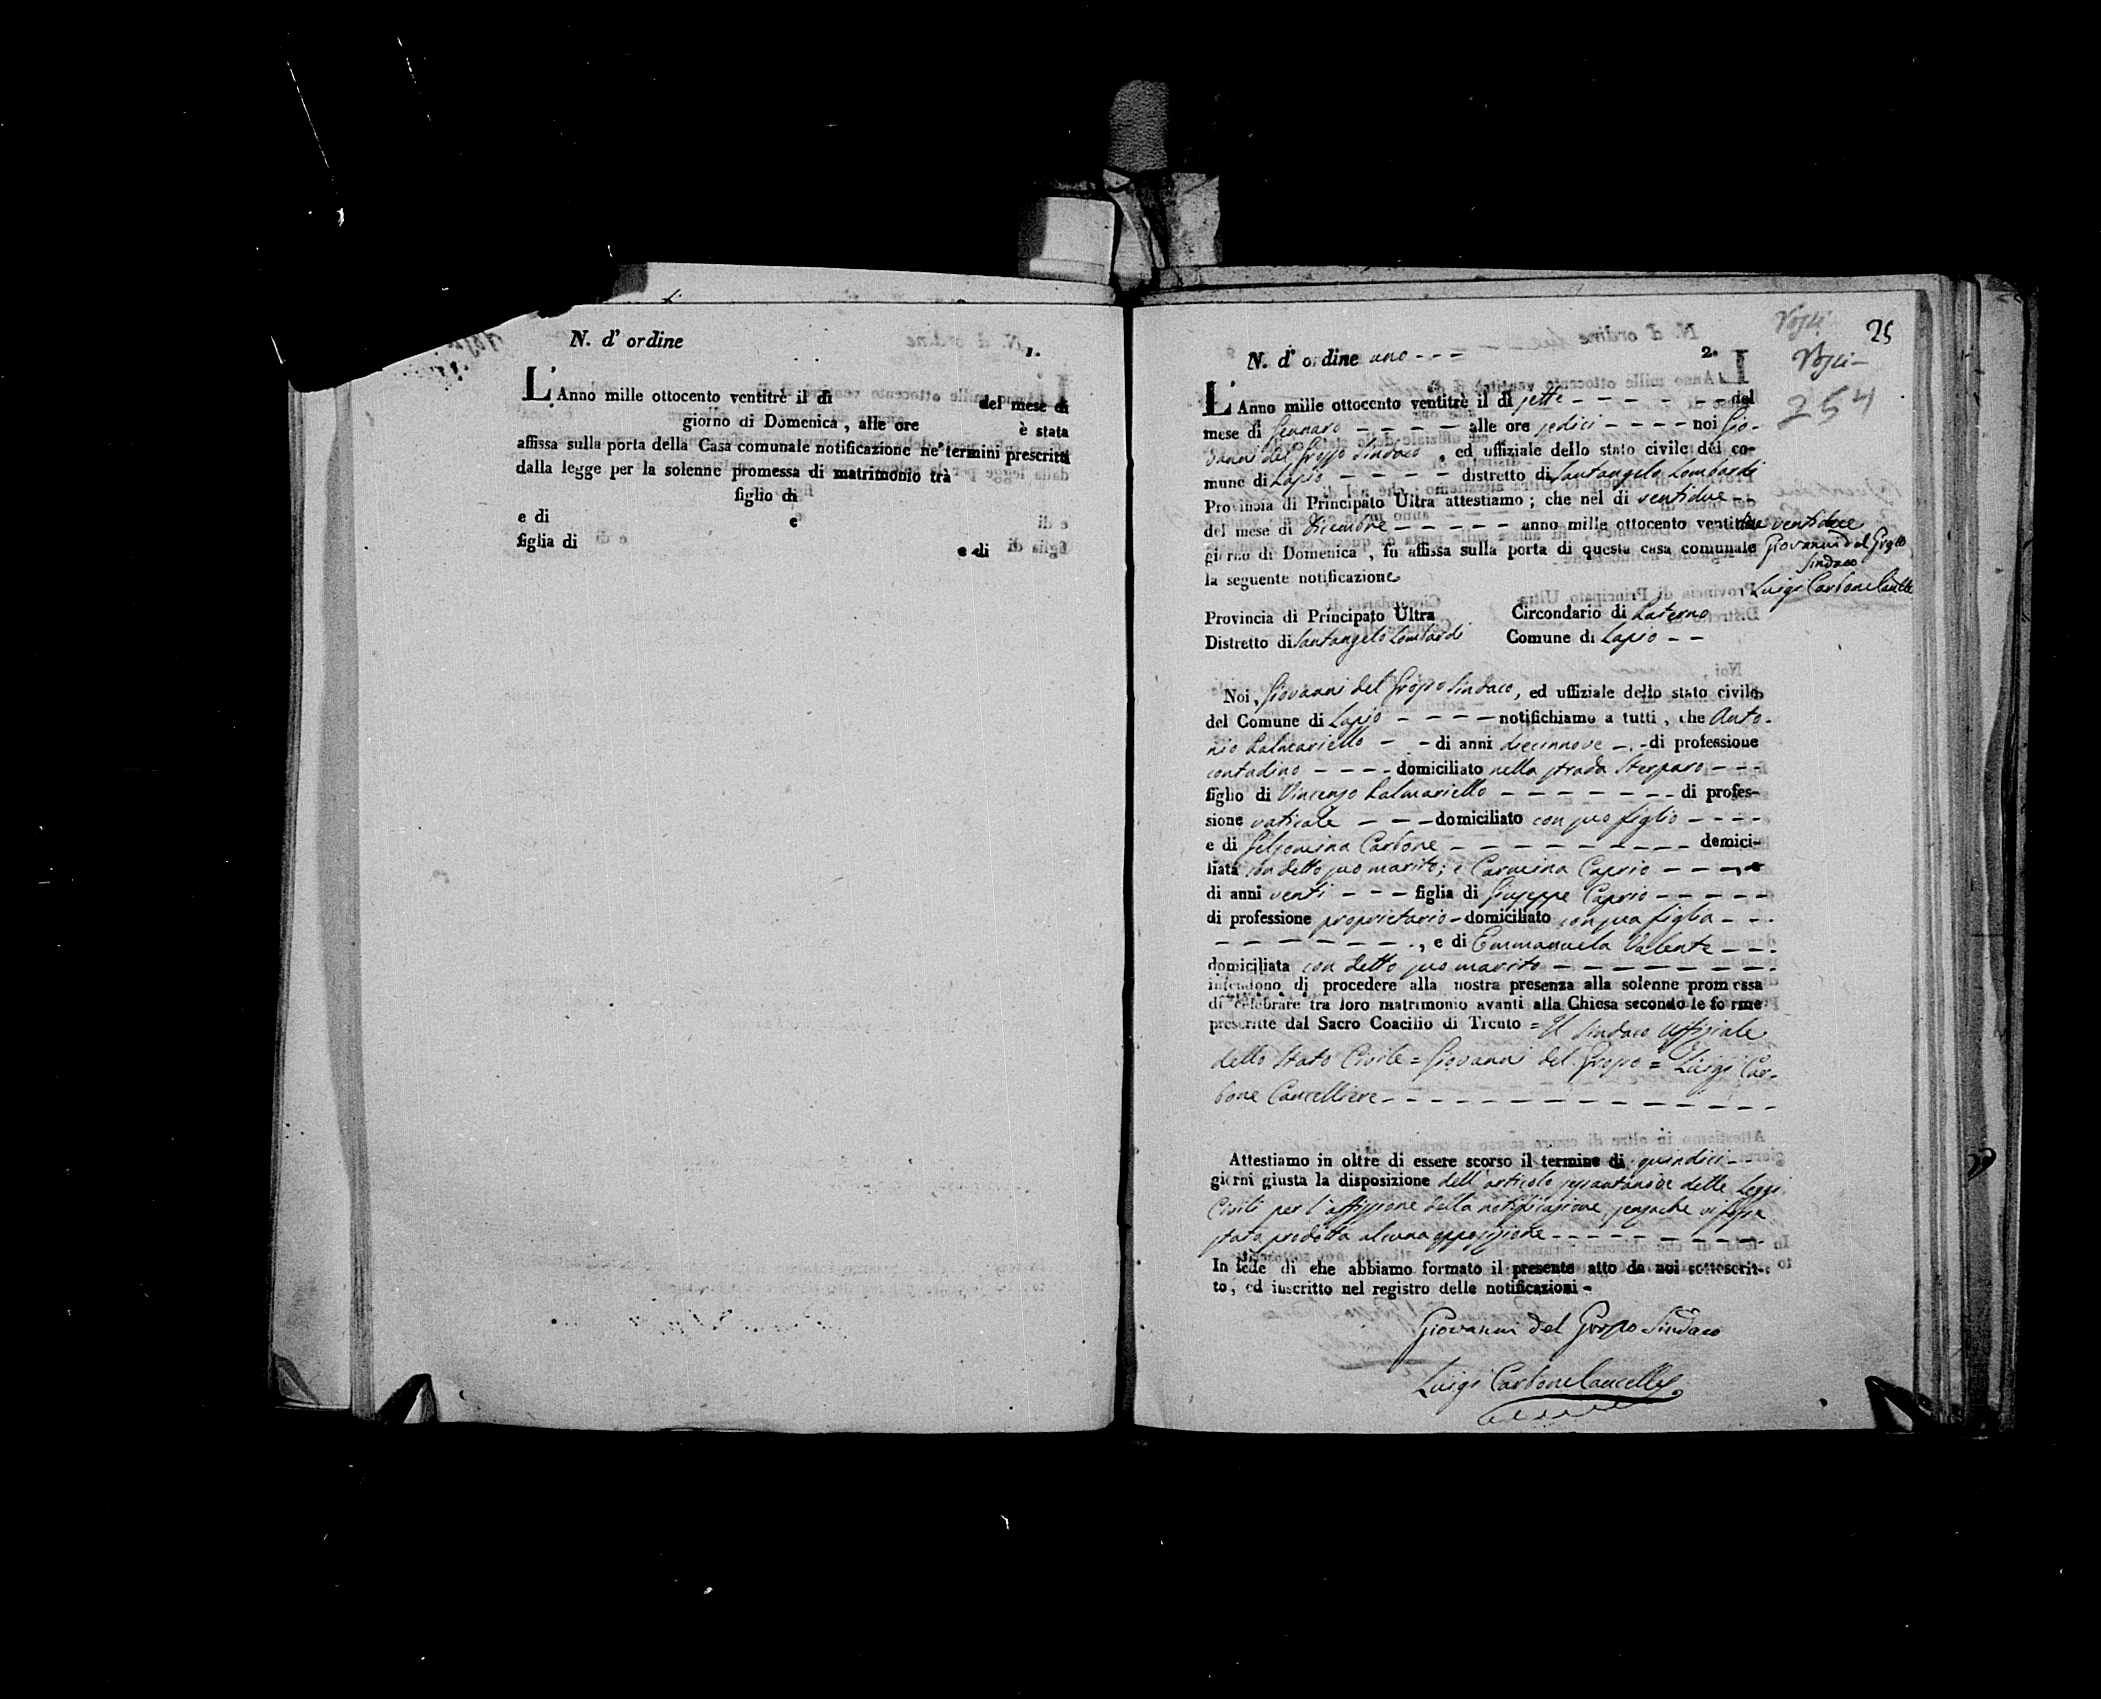 N. d' ordine
1.
L'Anno mille ottocento ventitrè il dì del mese di
giorno di Domenica, alle ore è stata
affissa sulla porta della Casa comunale notificazione ne' termini prescritti
dalla legge per la solenne promessa di matrimonio trà
figlio di
e di e
figlia di e di
25
N. d' ordine uno - - -
2.
254
L'Anno mille ottocento ventitrè il dì sette - - - - - - del
mese di Gennaro - - - - - alle ore sedici - - - - noi Gio-
vanni del Grosso Sindaco, ed uffiziale dello stato civile del co-
mune di Lapio - - - - distretto di Santangelo Lombardi
Provincia di Principato Ultra attestiamo; che nel dì ventidue - -
del mese di Dicembre - - - - - anno mille ottocento ventidue
giorno di Domenica, fu affissa sulla porta di questa casa comunale
la seguente notificazione
Giovanni del Grosso
Sindaco
Luigi Carbone Cancelle
Provincia di Principato Ultra Circondario di Paterno
Distretto di Santangelo Lombardi Comune di Lapio - -
Noi, Giovanni del Grosso Sindaco, ed uffiziale dello stato civile
del Comune di Lapio - - - - notifichiamo a tutti, che Anto-
nio Palmariello - - di anni diecinnove - - di professione
contadino - - - - domiciliato nella strada Sterparo - - -
figlio di Vincenzo Palmariello - - - - - - - di profes-
sione vaticale - - - domiciliato con suo figlio - - - -
e di Gelsomina Carbone - - - - - - - - - domici-
liata con detto suo marito; e Carmina Caprio - - - -
di anni venti - - - figlia di Giuseppe Caprio - - - - -
di professione proprietario - domiciliato con sua figlia - - -
- - - - - - - -, e di Emmanuela Valente - - -
domiciliata con detto suo marito - - - - - - - - -
intendono di procedere alla nostra presenza alla solenne promessa
di celebrare tra loro matrimonio avanti alla Chiesa secondo le forme
prescritte dal Sacro Coacilio di Trento = Il Sindaco Uffiziale
dello Stato Civile = Giovanni del Grosso = Luigi Car-
bone Cancelliere - - - - - - - - - - - - - - - -
Attestiamo in oltre di essere scorso il termine di quindici - -
giorni giusta la disposizione dell'articolo sessantanove delle Leggi
Civili per l'affissione della notificazione, senzache vi fosse
stata prodotta alcuna opposizione - - - - - - - - -
In fede di che abbiamo formato il presente atto da noi sottoscrit-
to, ed inscritto nel registro delle notificazioni -
Giovanni del Grosso Sindaco
Luigi Carbone Cancelle